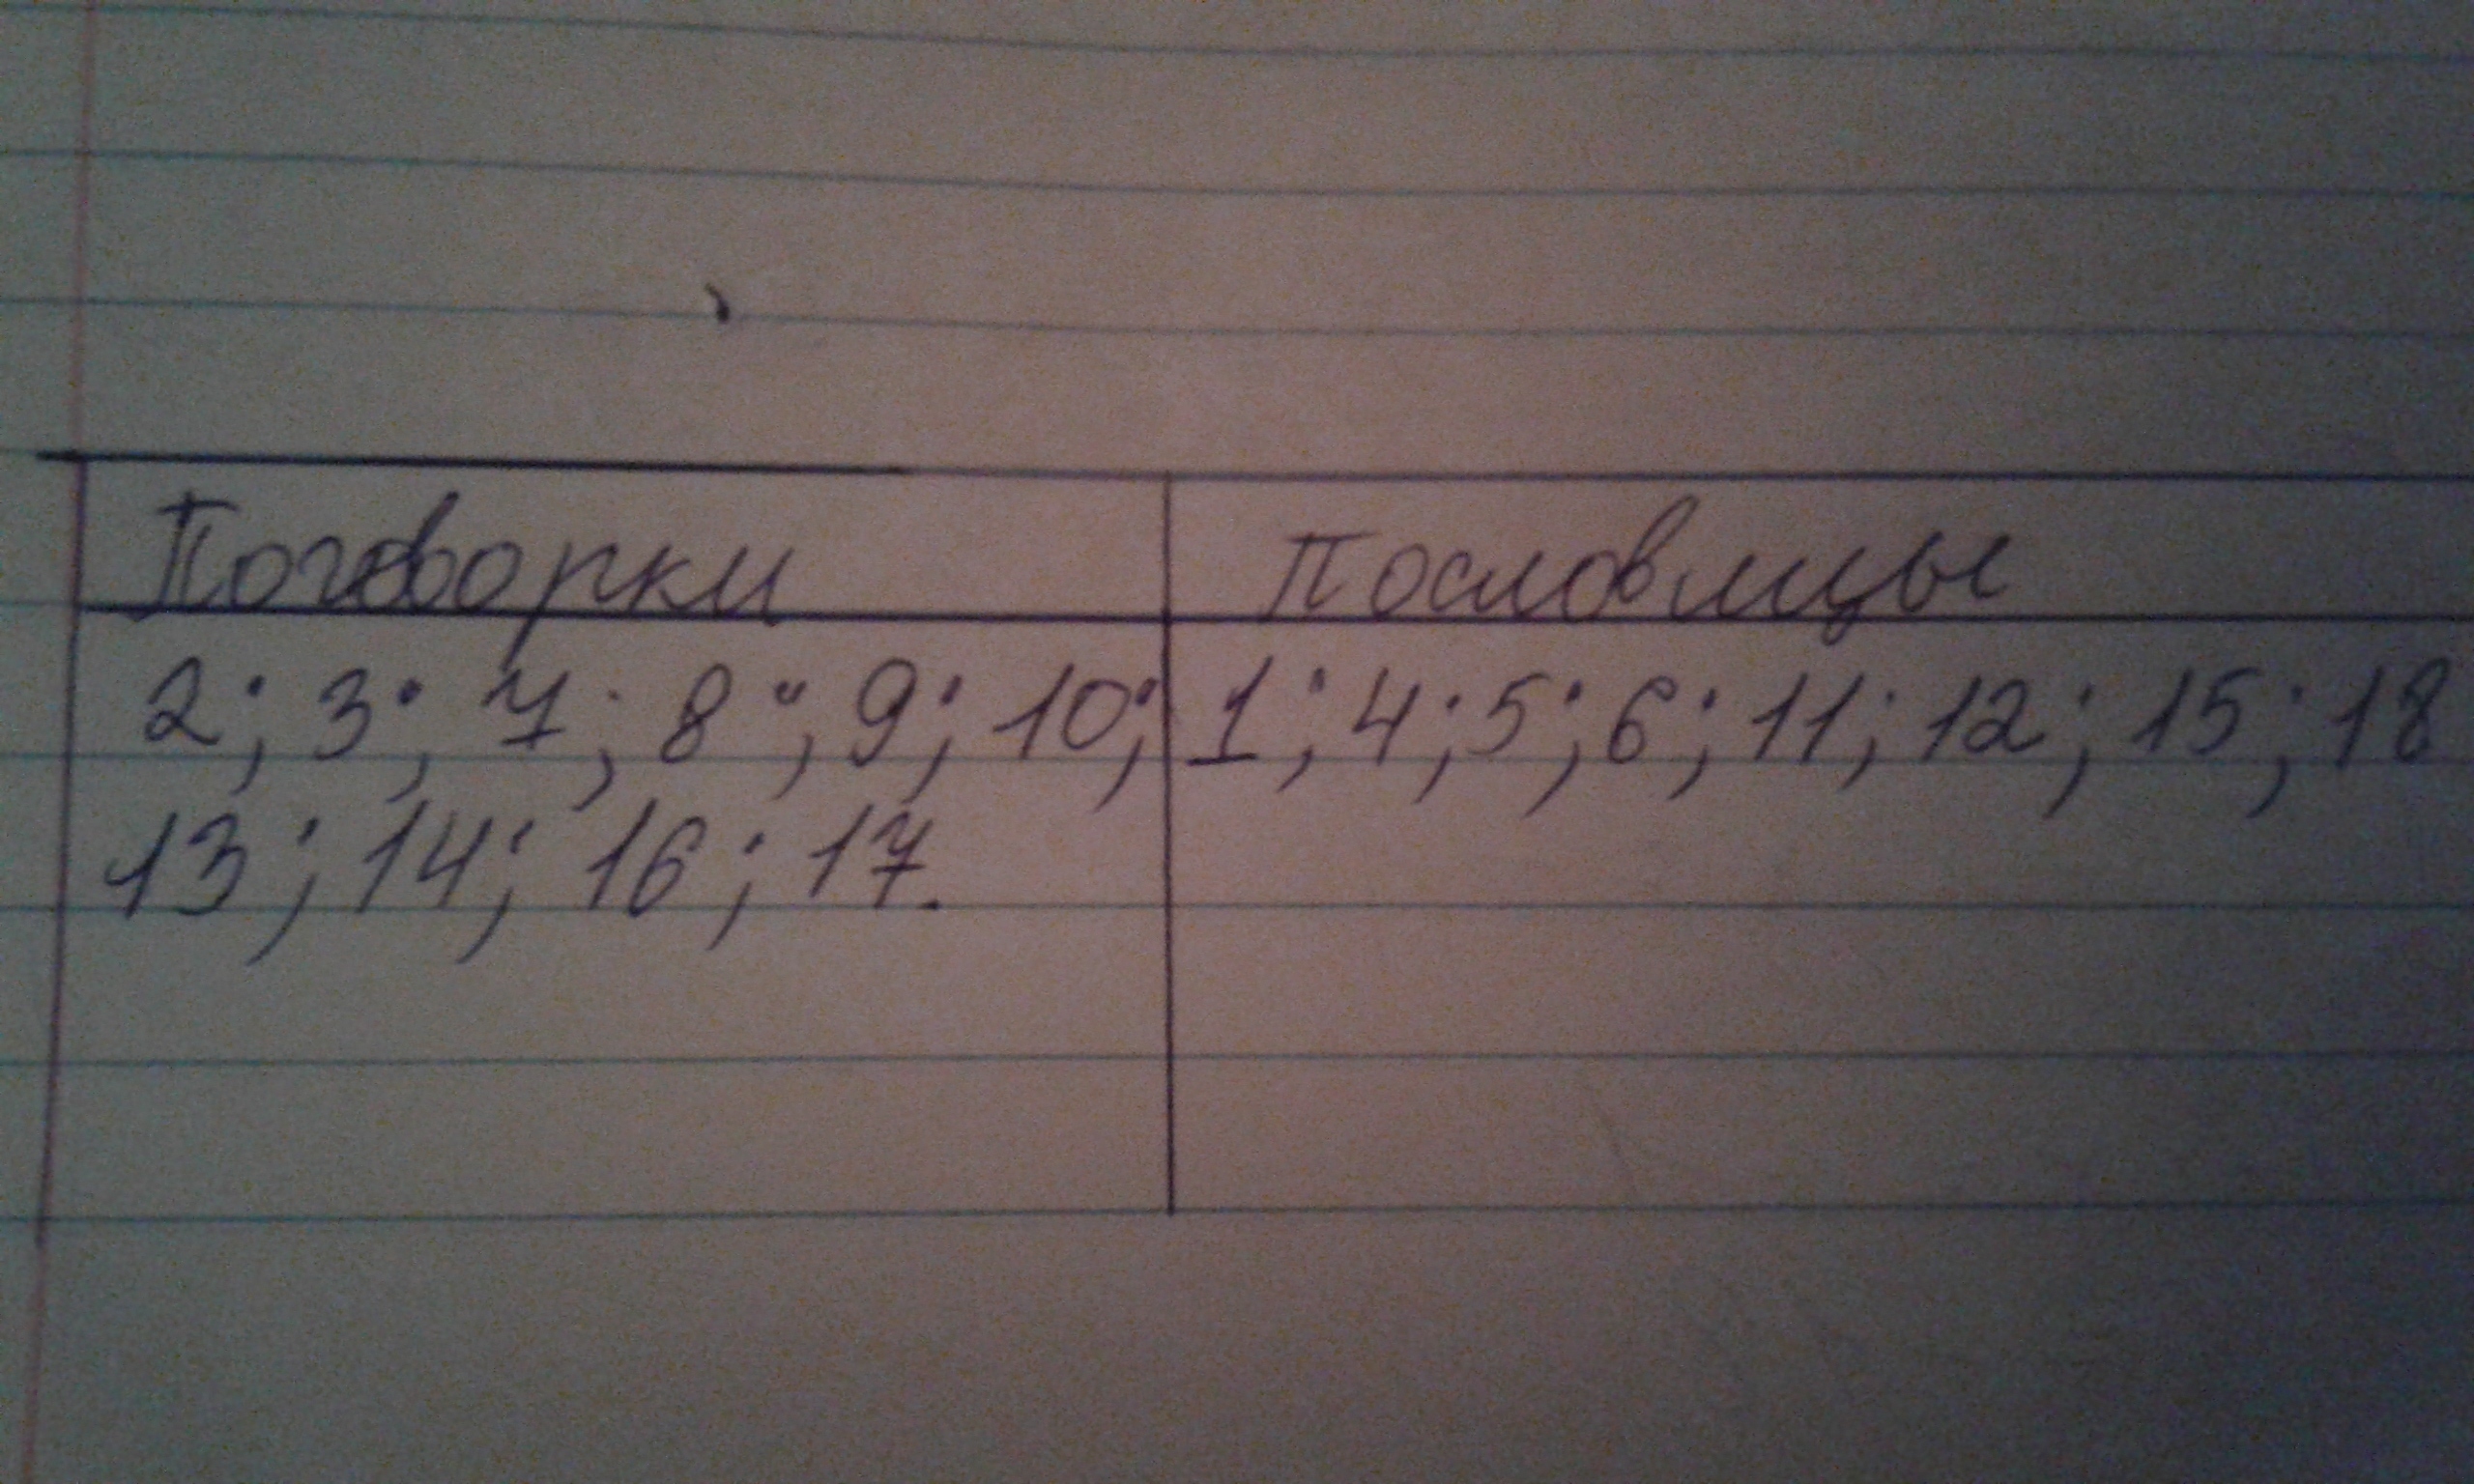 Поговорки Пословицы
2; 3; 7; 8; 9; 10; 1; 4; 5; 6; 11; 12; 15; 18
13; 14; 16; 17.